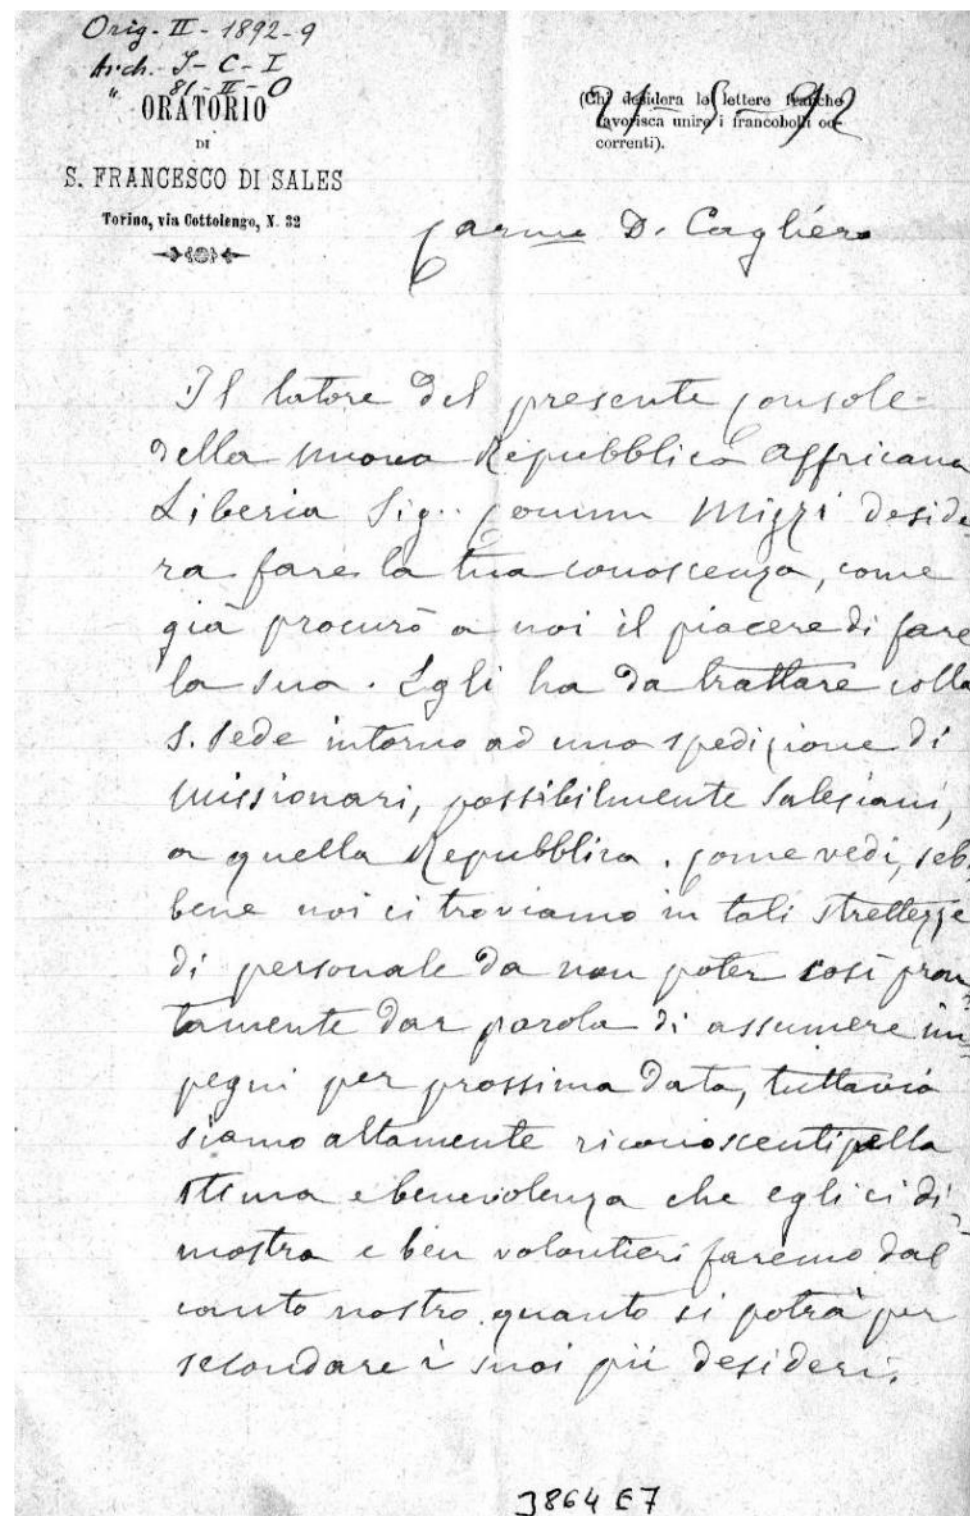 Orig. II - 1892-9
Arch. S - C - I
" 81 - II - O
ORATORIO
DI
S. FRANCESCO DI SALES
Torino, via Cottolengo, N. 32
(Chi desidera le lettere franche
favorisca unire i francobolli oc-
correnti).
21-5-92
Carmo D. Cagliero
Il latore del presente Console
della nuova Repubblica Affricana
Liberia Sig. Comm Mizzi deside
ra fare la tua conoscenza, come
già procurò a noi il piacere di fare
la sua. Egli ha da trattare colla
S. Sede intorno ad una spedizione di
Missionari, possibilmente Salesiani,
a quella Repubblica. Come vedi, seb-
bene noi ci troviamo in tali strettezze
di personale da non poter così pron
tamente dar parola di assumere im-
pegni per prossima data, tuttavia
siamo altamente riconoscenti pella
stima e benevolenza che egli ci di-
mostra e ben volontieri faremo dal
canto nostro quanto si potrà per
secondare i suoi pii desideri.
3864 E7